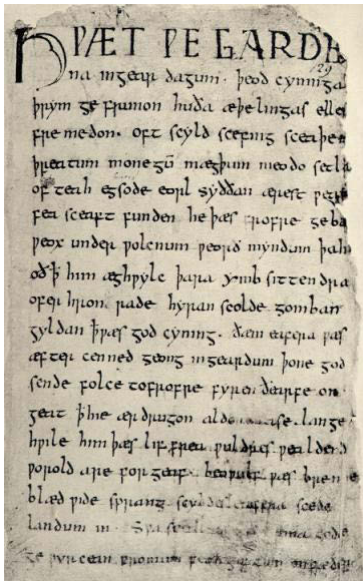 HǷÆT ǷE GARDE
129
na ingear dagum. þeod cyninga
þrym ge frunon huða æþelingas elle
fre medon. oft scyld scefing sceaþe
þreatum monegū mægþum meodo setla
of teah egsode eorl syððan ærest ƿear
fea sceaft funden he þæs frofre geba
ƿeox under ƿolcnum ƿeorð myndum þah
oð ꝥ him æghƿylc þara ymb sittendra
ofer hron rade hyran scolde gomban
gyldan ꝥ ƿæs god cyning. ðæm eafera ƿæs
æfter cenned geong ingeardum þone god
sende folce tofrofre fyren ðearfe on
geat ꝥ hie ær drugon aldor ase. lange
hƿile him þæs lif frea ƿuldres ƿealdend
ƿorold are for geaf. beoƿulf ƿæs breme
blæd ƿide sprang scyldes eafera scede
landum in. Sƿa guma gode
ge ƿyrcean fromum feoh giftum on fæder